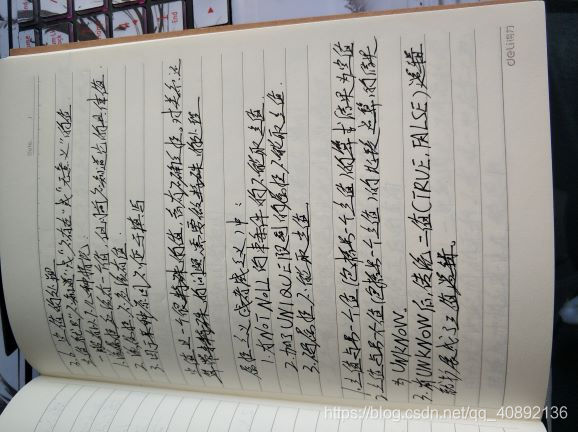 3.6 空值的处理
空值就是"不知道"或"不存在"或"无意义"的值
一般有以下几种情况:
1.该属性应该有一个值,但目前不知道它的具体值
2.该属性不应该有值
3.由于某种原因不便于填写
空值是一个很特殊的值,含有不确定性。对关系运
算带来特殊的问题,需要做特殊的处理
属性定义(或者域定义)中:
1.有NOT NULL约束条件的不能取空值
2.加了UNIQUE限制的属性不能取空值
3.码属性不能取空值
1.空值与另一个值(包括另一个空值)的算术结果为空值
2.空值与另一个值(包括另一个空值)的比较运算的结果
为UNKNOW.
3.有UNKNOW后,传统二值(TRUE,FALSE)逻辑
就扩展成了三值逻辑.
deli得力
https://blog.csdn.net/qq_40892136